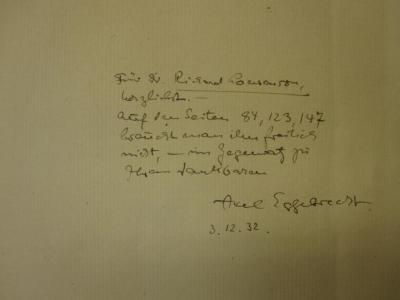 Für Dr. Richard
herzlichst. –
Auf den Seiten 84, 123, 147
braucht man ihn freilich
nicht, – im Gegensatz zu
Ihrem dankbaren
Axel Eggebrecht.
3.12.32.